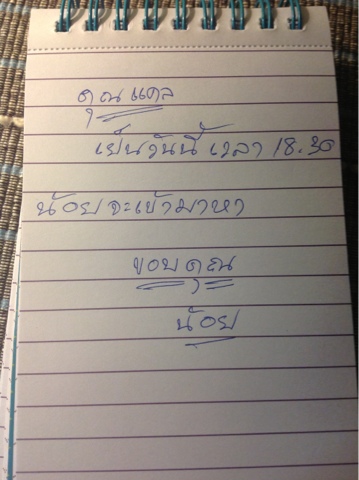 คุณแคล
เย็นวันนี้ เวลา 18.30
น้อยจะเข้ามาหา
ขอบคุณ
น้อย